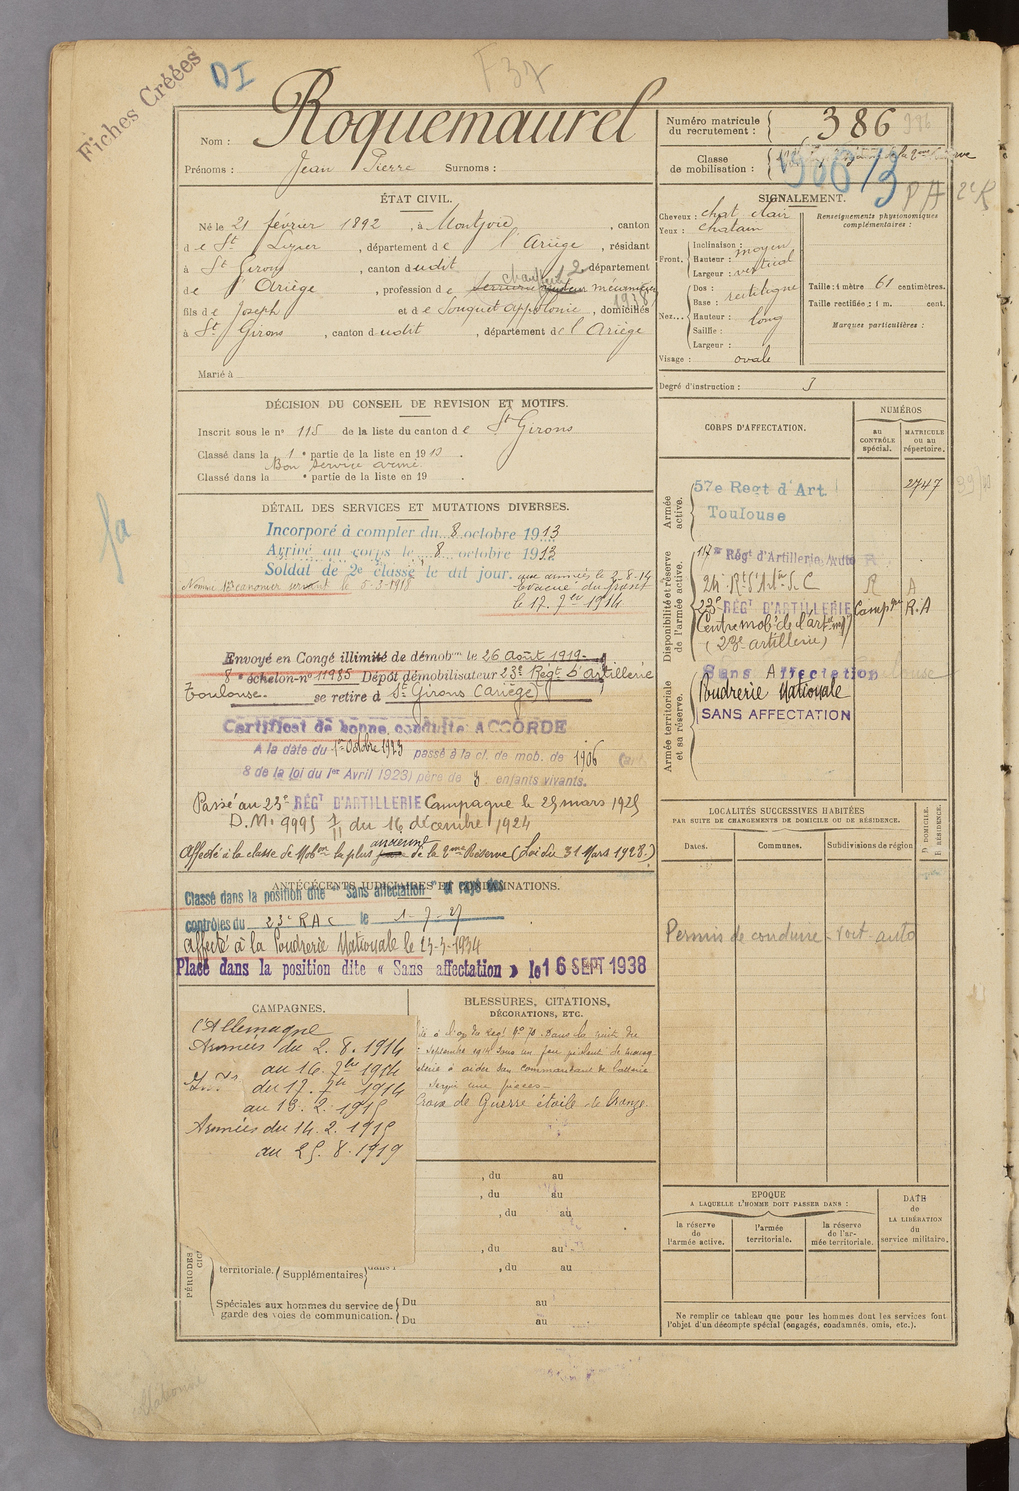 Fiches Créées
DI
F37
Nom : Roquemaurel
Prénoms : Jean Pierre Surnoms :
Numéro matricule du recrutement : 386
Classe de mobilisation :
ÉTAT CIVIL.
Né le 21 février 1892, à Montjoie, canton
de St Lizier, département de l'Ariège, résidant
à St Girons, canton dudit, département
de l'Ariège, profession de mécanicien
fils de Joseph et de Souquet Appolonie, domiciliés
à St Girons, canton dudit, département de l'Ariège
Marié à
SIGNALEMENT.
Cheveux : chat clair
Yeux : chatain
Front, Inclinaison :
Hauteur : moyen
Largeur : vertical
Nez... Dos : rectiligne
Base :
Hauteur : long
Saillie :
Largeur :
Visage : ovale
Renseignements physionomiques complémentaires :
Taille : 1 mètre 61 centimètres.
Taille rectifiée : 1 m. cent.
Marques particulières :
Degré d'instruction : 3
DÉCISION DU CONSEIL DE REVISION ET MOTIFS.
Inscrit sous le n° 115 de la liste du canton de St Girons
Classé dans la 1e partie de la liste en 1913.
Bon service armé
Classé dans la e partie de la liste en 19 .
DÉTAIL DES SERVICES ET MUTATIONS DIVERSES.
Incorporé à compter du 8 octobre 1913
Arrivé au corps le 8 octobre 1913
Soldat de 2e classe, le dit jour. aux armées le 2-8-14
évacué du front
le 17. 7bre 1914
Envoyé en Congé illimité de démobon le 26 Août 1919
8e échelon n° 11985 Dépôt démobilisateur 23e Régt d'artillerie
Toulouse. se retire à St Girons (Ariège)
Certificat de bonne conduite ACCORDÉ
A la date du 1er Octobre 1923 passé à la cl. de mob. de 1906
8 de la loi du 1er Avril 1923) père de 3 enfants vivants.
Passé au 23e RÉGT D'ARTILLERIE Campagne le 25 mars 1925
D.M. 9995 1/11 du 16 décembre 1924
Affecté à la classe de Mobon la plus ancienne de la 2eme Réserve (Loi du 31 Mars 1928.)
ANTÉCÉDENTS JUDICIAIRES ET CONDAMNATIONS.
Classé dans la position dite "Sans affectation"
contrôles du 23e RAC le 1-7-27
affecté à la Poudrerie Nationale le 23-3-1934
Placé dans la position dite « Sans affectation » le 16 SEPT 1938
CORPS D'AFFECTATION.
NUMÉROS
au CONTRÔLE spécial.
MATRICULE ou au répertoire.
Armée active.
57e Regt d'Art.
Toulouse
2747
Disponibilité et réserve de l'armée active.
117e Régt d'Artillerie Auto R
24e Rt d'Art. S.C R A
23e RÉGT D'ARTILLERIE Campgne R.A
Centre mob. de l'art.
(23e artillerie)
Armée territoriale et sa réserve.
Sans Affectation
Poudrerie Nationale
SANS AFFECTATION
LOCALITÉS SUCCESSIVES HABITÉES
PAR SUITE DE CHANGEMENTS DE DOMICILE OU DE RÉSIDENCE.
Dates.
Communes.
Subdivisions de région
D DOMICILE.
R RÉSIDENCE.
Permis de conduire voit-auto
CAMPAGNES.
C/Allemagne
Armées du 2. 8. 1914
au 16. 7bre 1914
du 17. 7bre 1914
au 13. 2. 1915
Armées du 14. 2. 1915
au 25. 8. 1919
BLESSURES, CITATIONS,
DÉCORATIONS, ETC.
Croix de Guerre étoile de bronze.
, du au
, du au
, du au
, du au
, du au
territoriale. Supplémentaires
Spéciales aux hommes du service de garde des voies de communication. Du au
Du au
EPOQUE
A LAQUELLE L'HOMME DOIT PASSER DANS :
la réserve de l'armée active.
l'armée territoriale.
la réserve de l'armée territoriale.
DATE de LA LIBÉRATION du service militaire.
Ne remplir ce tableau que pour les hommes dont les services font l'objet d'un décompte spécial (engagés, condamnés, omis, etc.).